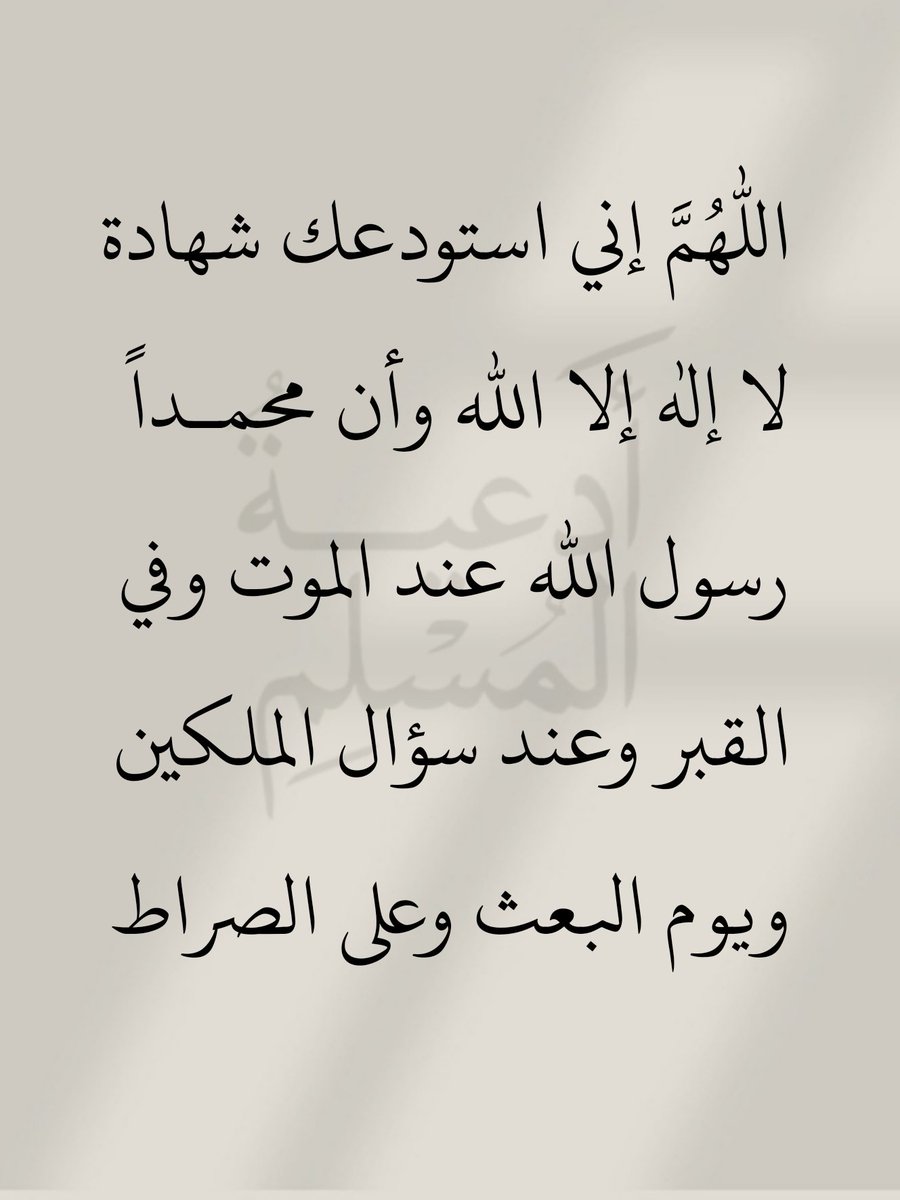 اللّٰهُمَّ إني استودعك شهادة
لا إلٰه إلا اللّٰه وأن محمــداً
رسول اللّٰه عند الموت وفي
القبر وعند سؤال الملكين
ويوم البعث وعلى الصراط
أدعيـــةُ
المُسْلِم